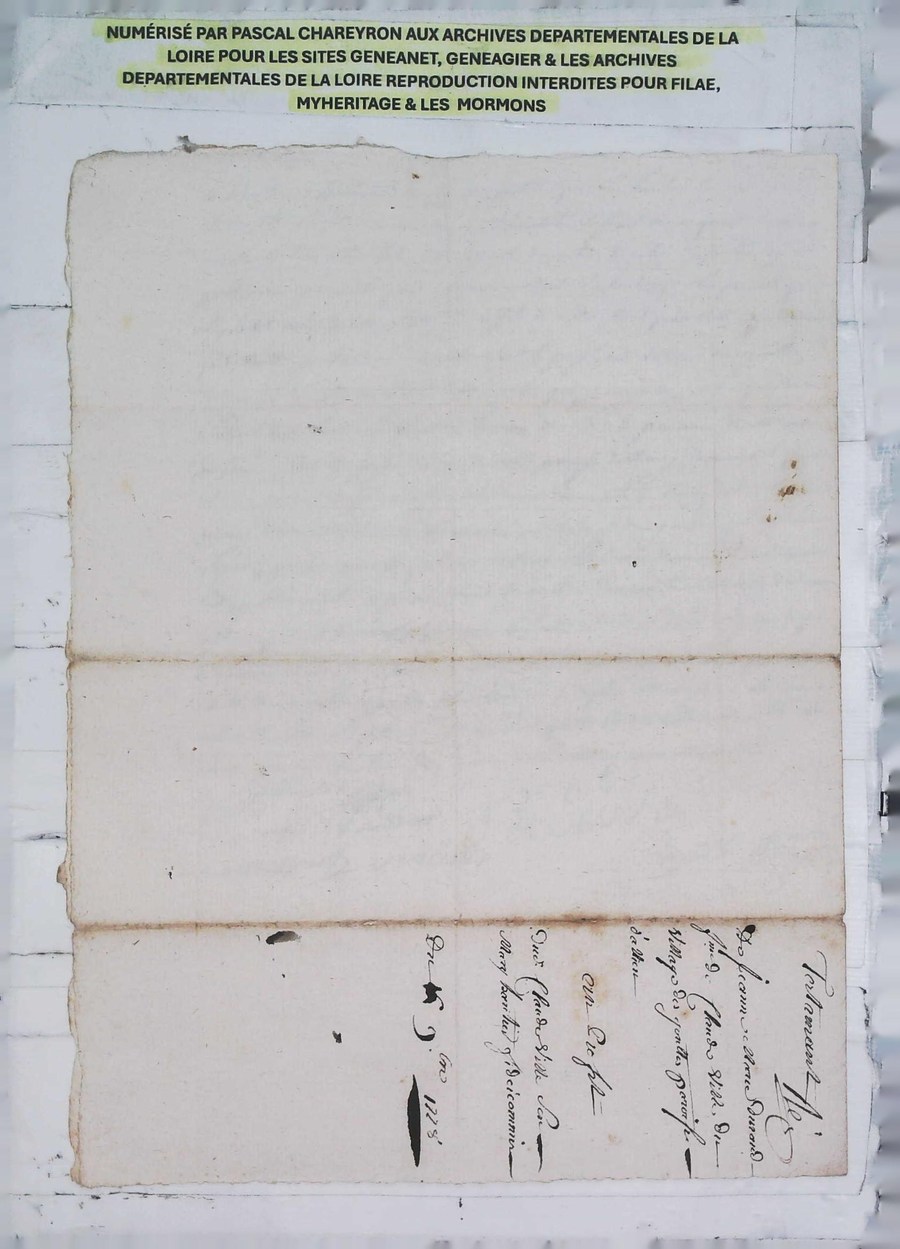 NUMÉRISÉ PAR PASCAL CHAREYRON AUX ARCHIVES DEPARTEMENTALES DE LA
LOIRE POUR LES SITES GENEANET, GENEAGIER & LES ARCHIVES
DEPARTEMENTALES DE LA LOIRE REPRODUCTION INTERDITES POUR FILAE,
MYHERITAGE & LES MORMONS
Testament
De jeanne marie durand
fme de Claude Ville du
Village des paroisse
au proffit
Dud Claude Ville son
Mary heritier fideicommis
Du 9 bre 1778